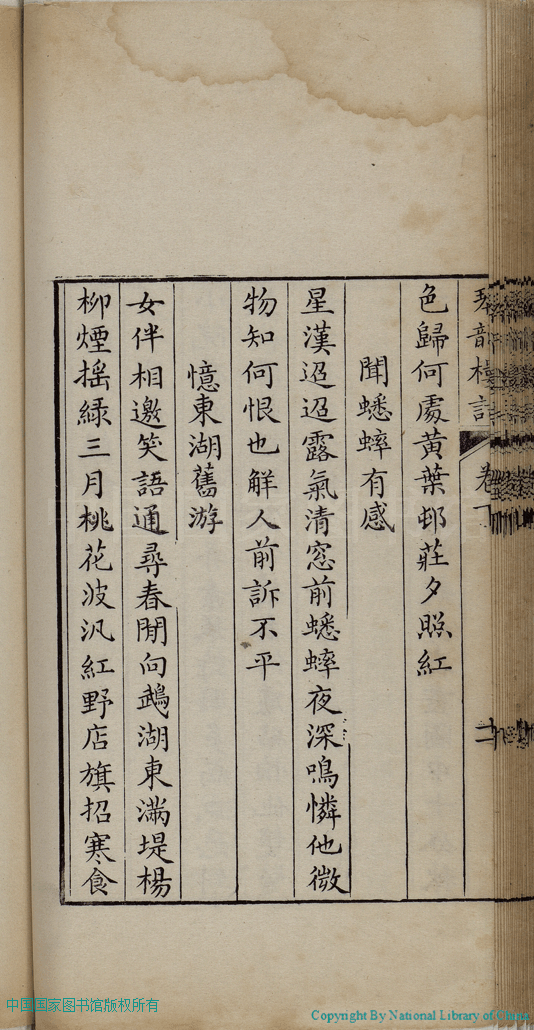 琴韵樓詩 卷下 二
色歸何處黃葉邨莊夕照紅
聞蟋蟀有感
星漢迢迢露氣清窓前蟋蟀夜深鳴憐他微
物知何恨也解人前訴不平
憶東湖舊游
女伴相邀笑語通尋春閒向鵡湖東滿堤楊
柳煙搖綠三月桃花波汎紅野店旗招寒食
中国国家图书馆版权所有
Copyright By National Library of China